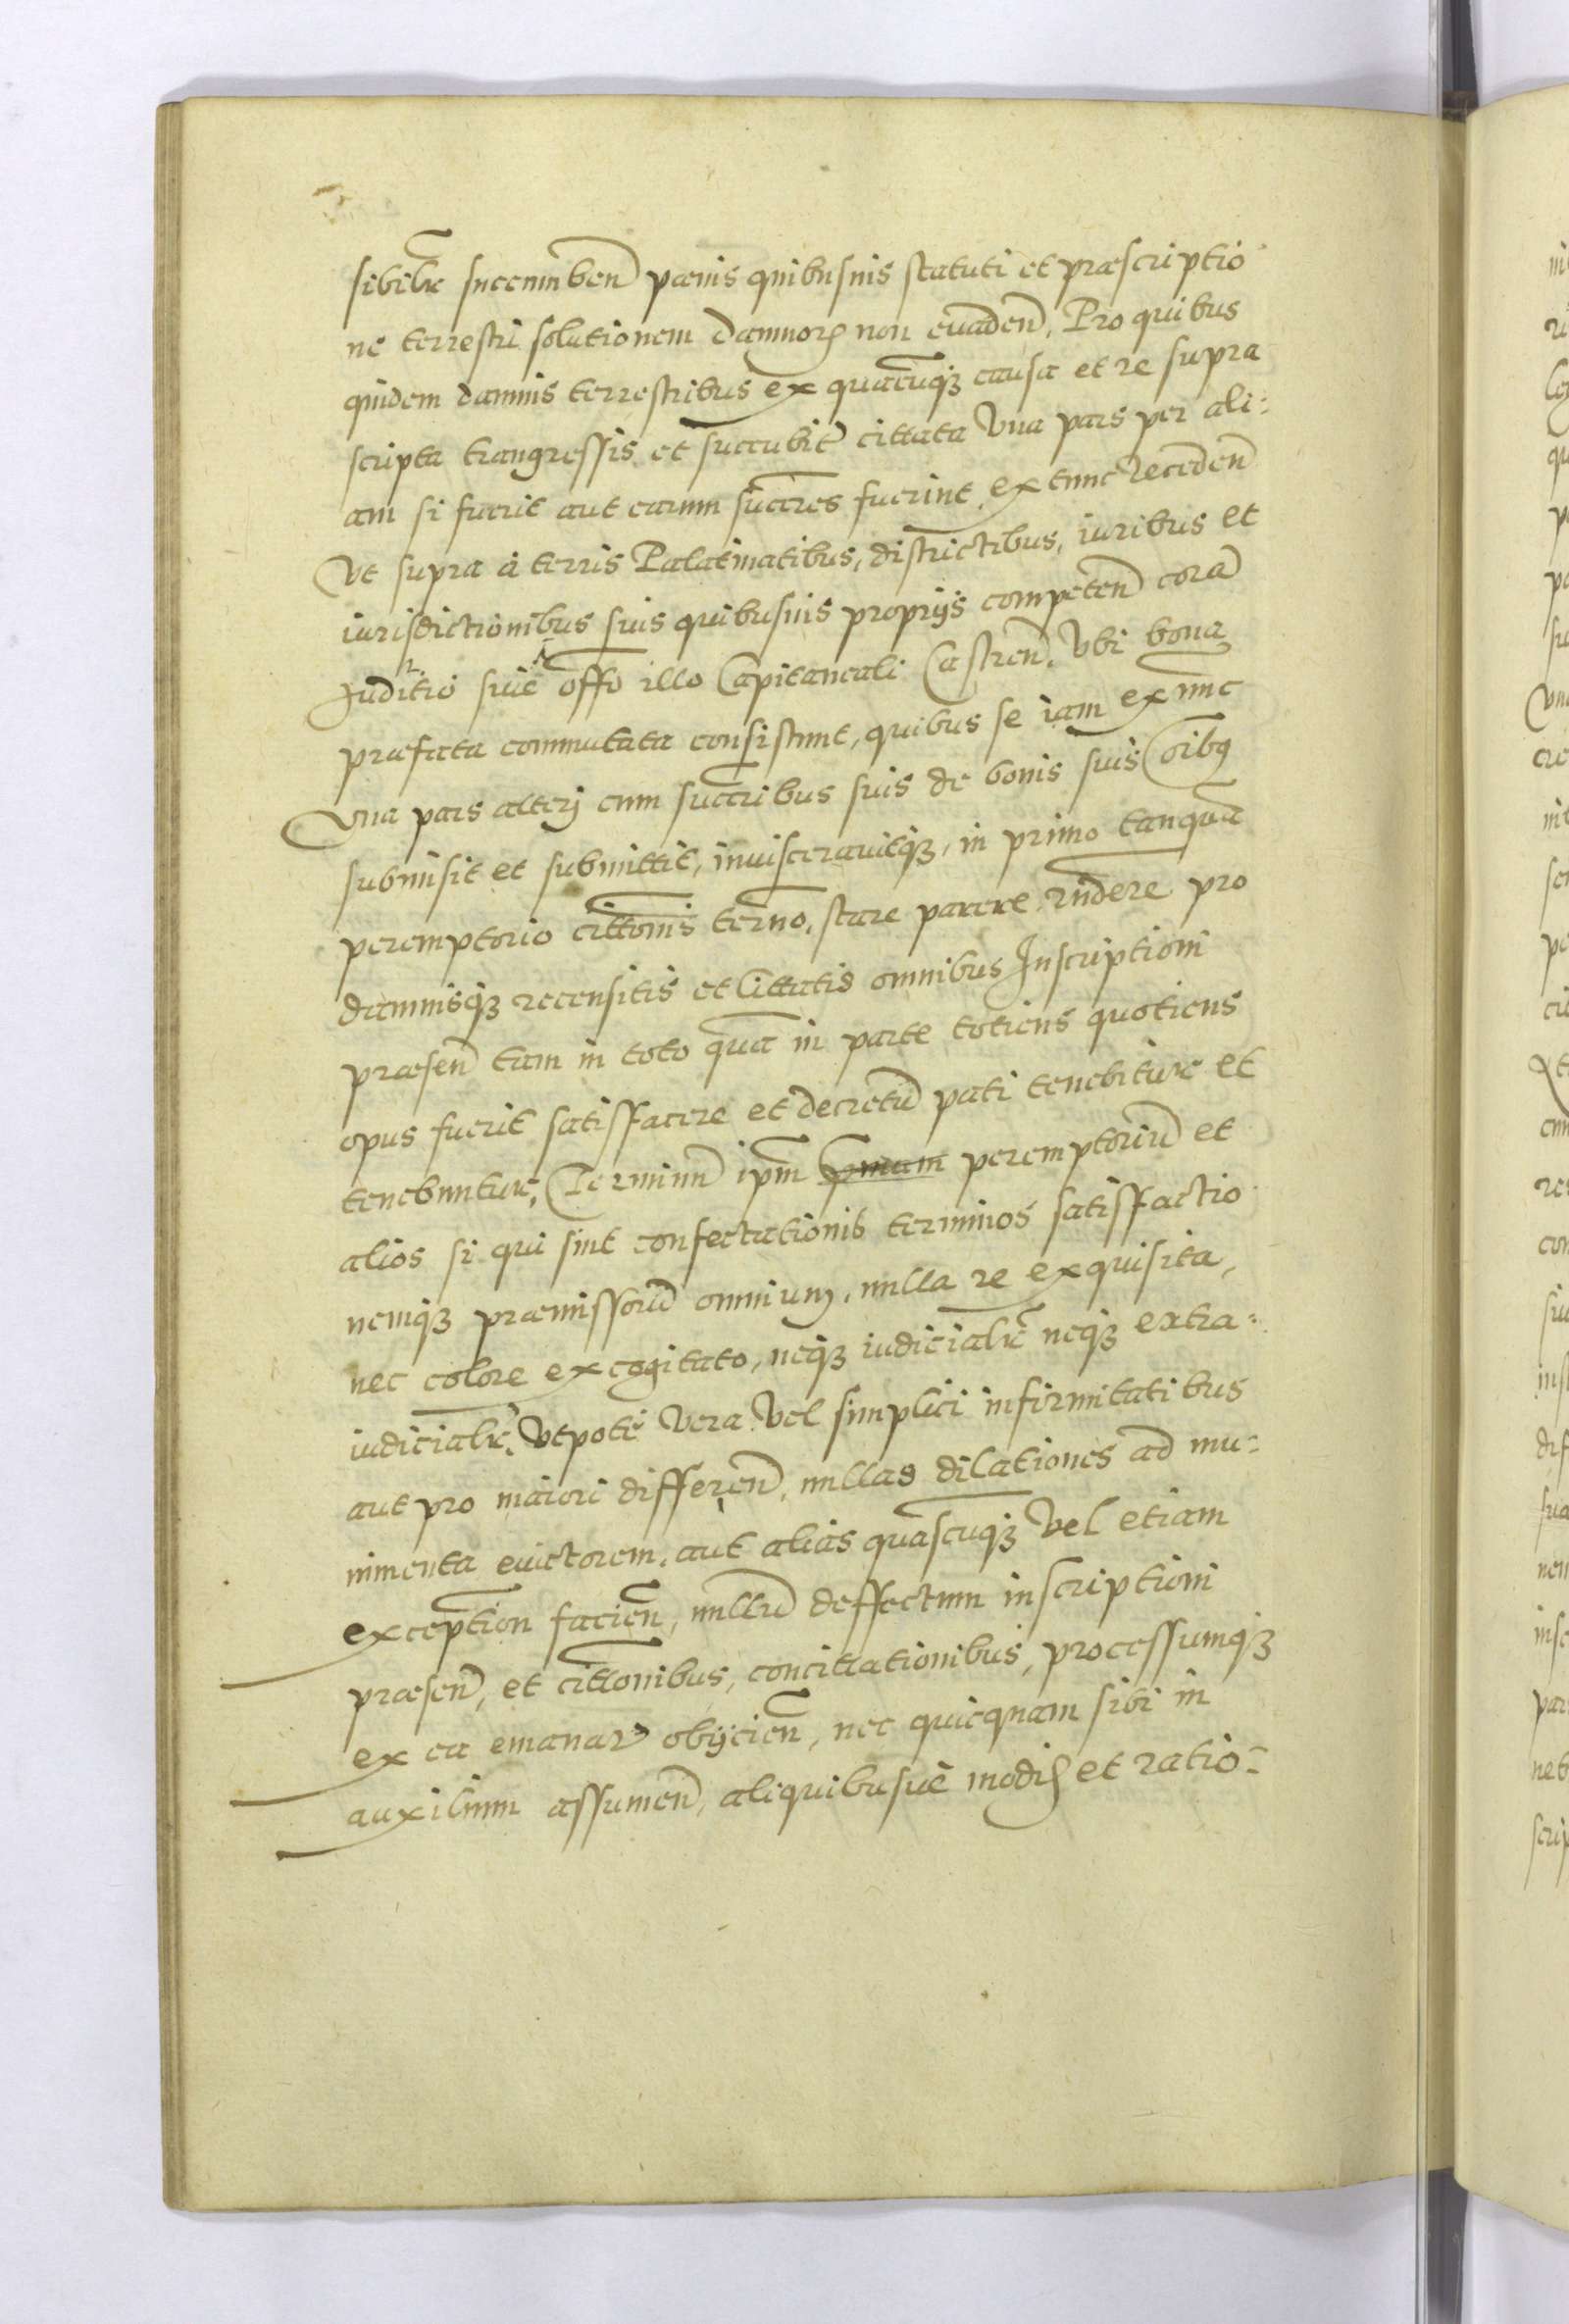 sibilr succumben̄ pœnis quibusuis statuti et præscriptio
ne terrestri solutionem damnorꝝ non euaden̄, Pro quibus
quidem damnis terrestribus ex quacūqꝫ causa et re supra
scripta trangressis et succubit̄ cittata vna pars per ali=
am si fuerit aut earum succres fuerint, ex tunc receden̄
vt supra à terris Palatinatibus, districtibus, iuribus et
iurisdictionibus suis quibusuis proprijs competen̄ corā
Juditio siue offō illo Capitaneali Castren̄. vbi bona
præfata commutata consistunt, quibus se iam ex nunc
vna pars alterj cum succribus suis de bonis suis oībꝯ
submisit et submittit, inuisceravitqꝫ, in primo tanquā
peremptorio cittōnis termo, stare parere rn̄dere pro
damnisqꝫ recensitis et littatis omnibus Inscriptioni
præsen̄ tam in toto quā in parte totiens quotiens
opus fuerit satisfacere et decretū pati tenebitur et
tenebuntur, Terminū ipm̄ peremptoriū et
alios si qui sint consectationis terminos satisfactio
nemqꝫ præmissorū omnium, nulla re exquisita,
nec colore excogitato, neqꝫ iudicialr̄ neqꝫ extra=
iudicialr̄, vtpote vera vel simplici infirmitatibus
aut pro maiori differen̄, nullas dilationes ad mu=
nimenta euictorem, aut alias quascūqꝫ vel etiam
exception facien̄, nullū deffectum inscriptioni
præsen̄, et cittōnibus, concittationibus, processumqꝫ
ex ea emanar̄ obijcien̄, nec quicquam sibi in
auxilium assumen̄, aliquibusue modis et ratio=